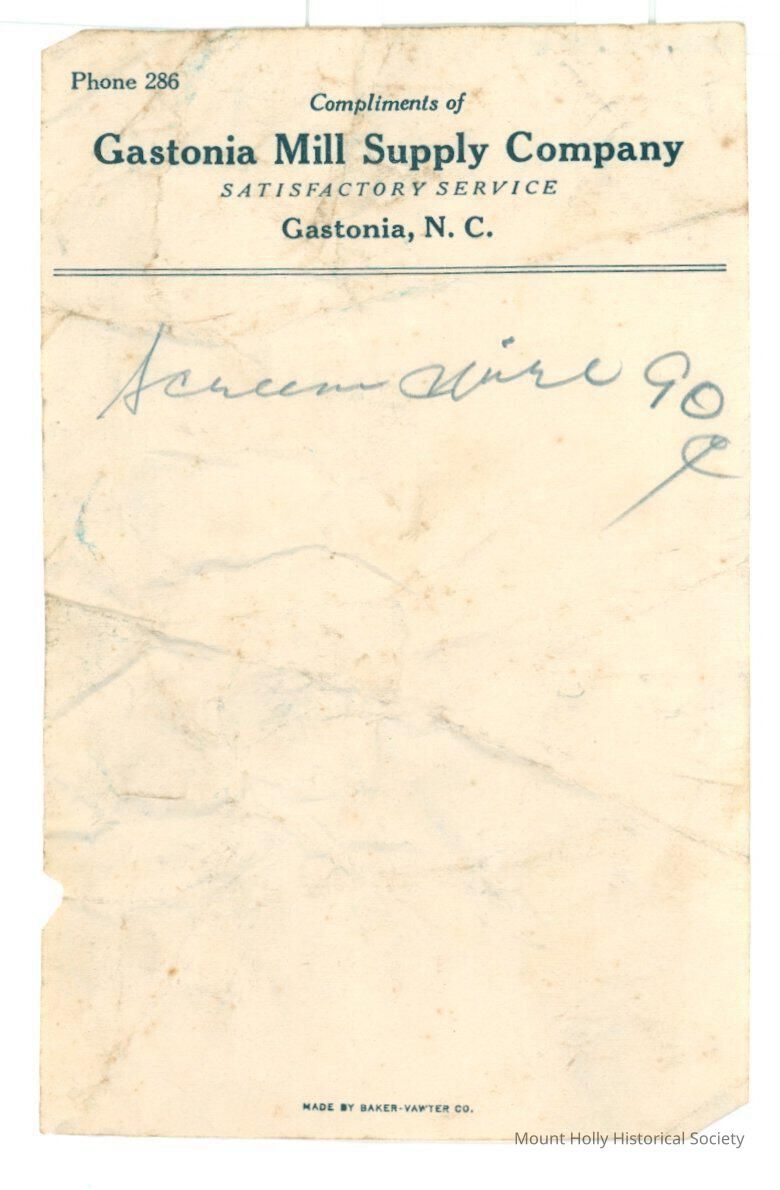 Phone 286
Compliments of
Gastonia Mill Supply Company
SATISFACTORY SERVICE
Gastonia, N. C.
Screen Wire 90
¢
MADE BY BAKER-VAWTER CO.
Mount Holly Historical Society